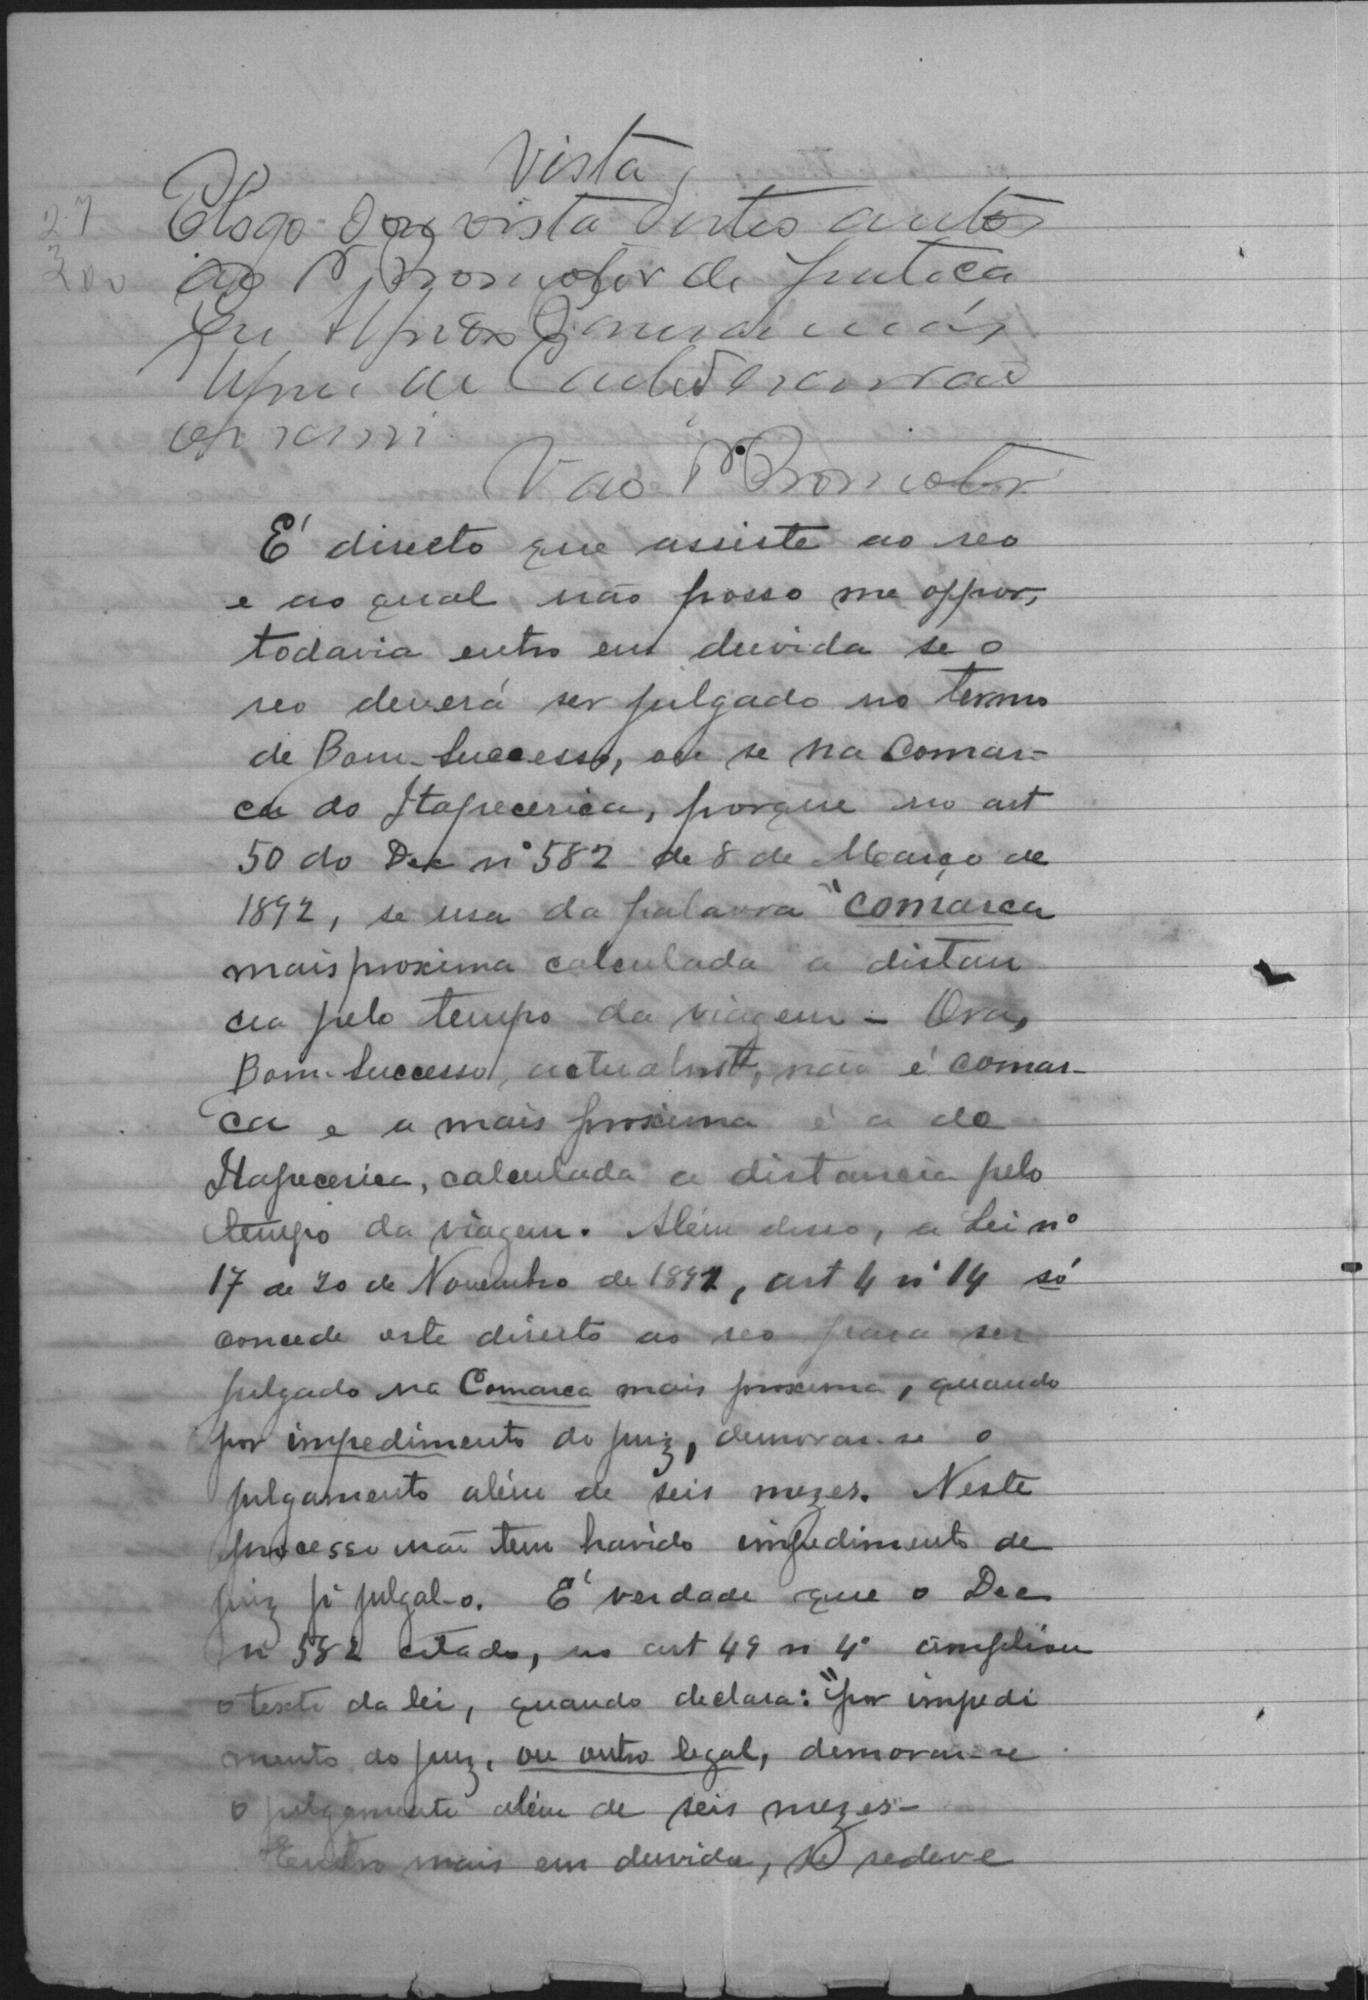 Vista
Elogo dou vista destes autos
ao P. Promotor de justiça
Eu
escrivão
escrevi
V ao P. Promotor
27
300
É directo que assiste ao reo
e ao qual não posso me oppor,
todavia entro em duvida se o
reo deverá ser julgado no termo
de Bom-Successo, ou se na Comar-
ca do Itapecerica, porque no art
50 do Dec nº 582 de 8 de Março de
1892, se usa da palavra "comarca
mais proxima calculada a distan
cia pelo tempo da viagem - Ora,
Bom-Successo, actualmte, não é comar-
ca e a mais proxima é a de
Itapecerica, calculada a distancia pelo
tempo da viagem. Além disso, a Lei nº
17 de 20 de Novembro de 1891, art 4 nº 14 só
concede este direito ao reo para ser
julgado na Comarca mais proxima, quando
por impedimento do juiz, demorar-se o
julgamento além de seis mezes. Neste
processo não tem havido impedimento de
juiz pª julgal-o. É verdade que o Dec
nº 582 citado, no art 49 n 4º ampliou
o texto da lei, quando declara: "por impedi
mento do juiz, ou outro legal, demorar-se
o julgamento além de seis mezes-
Entro mais em duvida, se se deve